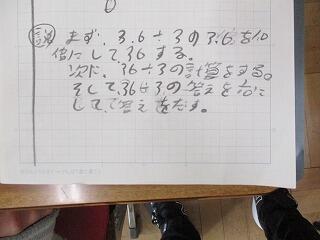 説 まず、3.6÷3の3.6を10
倍にして、36する。
次に、36÷3の計算をする。
そして、36÷3の答えを1/10に
して、答えをだす。